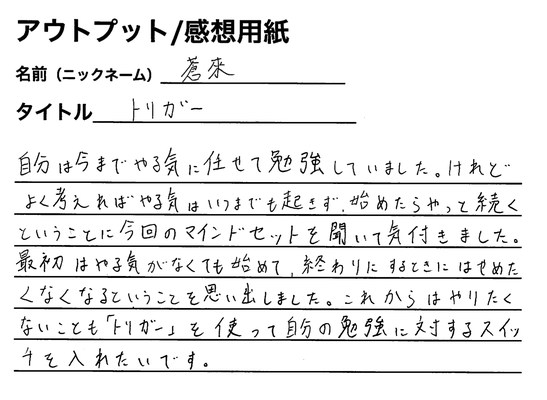 アウトプット/感想用紙
名前（ニックネーム） 蒼來
タイトル トリガー
自分は今までやる気に任せて勉強していました。けれど
よく考えればやる気はいつまでも起きず、始めたらやっと続く
ということに今回のマインドセットを聞いて気付きました。
最初はやる気がなくても始めて、終わりにするときにはせめた
くなくなるということを思い出しました。これからはやりたく
ないことも「トリガー」を使って自分の勉強に対するスイッ
チを入れたいです。